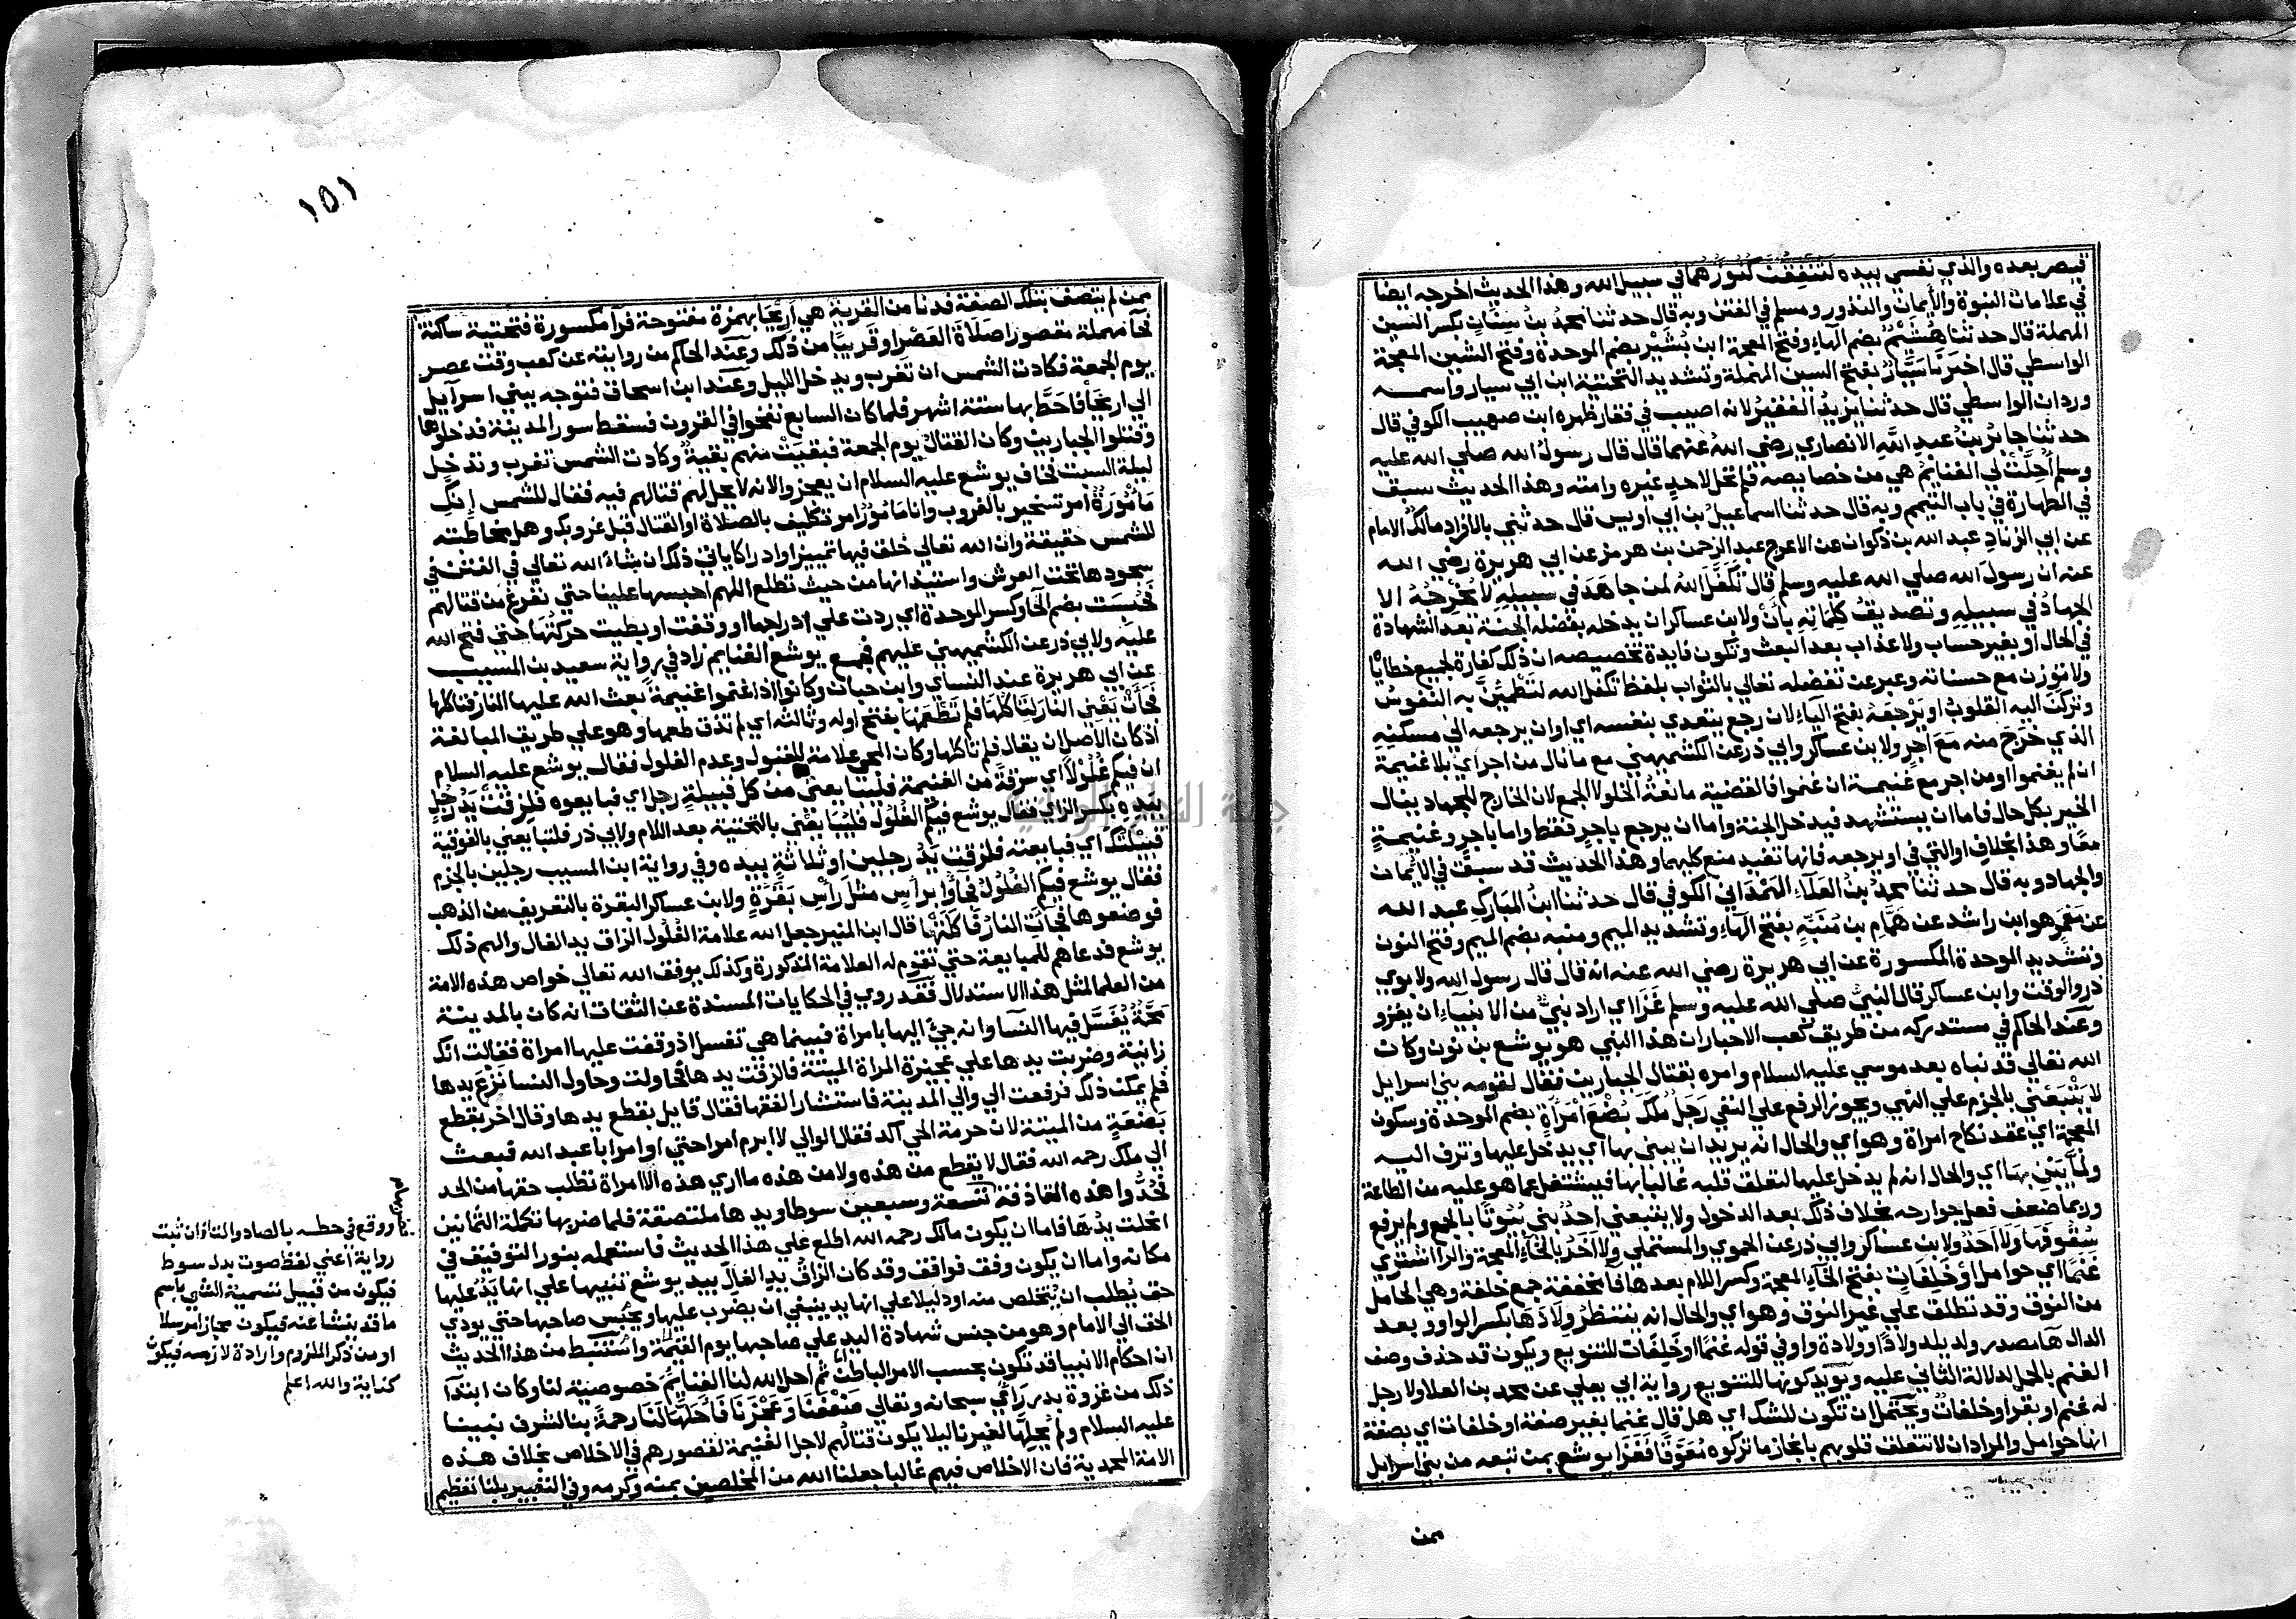 قيصر بعده والذي نفسي بيده لتنفقن كنوزهما في سبيل الله وهذا الحديث اخرجه ايضا
في علامات النبوة والأيمان والنذور ومسلم في الفتن وبه قال حدثنا محمد بن سنان بكسر السين
المهملة قال حدثنا هُشَيْم بضم الهاء وفتح المعجمة ابن بُشَيْر بضم الموحدة وفتح الشين المعجمة
الواسطي قال اخبرنا سَيَّار بفتح السين المهملة وتشديد التحتية ابن ابي سيار واسمه
وردان الواسطي قال حدثنا يزيد الفقير لانه اصيب في فقار ظهره ابن صهيب الكوفي قال
حدثنا جابر بن عبد الله الانصاري رضي الله عنهما قال قال رسول الله صلي الله عليه
وسلم أُحِلَّت لي الغنايم هي من خصايصه فلم تحل لاحد غيره وامته وهذا الحديث سبق
في الطهارة في باب التيمم وبه قال حدثنا اسماعيل بن ابي اويس قال حدثني بالافراد مالك الامام
عن ابي الزناد عبد الله بن ذكوان عن الاعرج عبد الرحمن بن هرمز عن ابي هريرة رضي الله
عنه ان رسول الله صلي الله عليه وسلم قال تكفَّل الله لمن جاهد في سبيله لا يُخرِجُه الا
الجهاد في سبيله وتصديق كلماته بأن ولابن عساكر ان يدخله بفضله الجنة بعد الشهادة
في الحال او بغير حساب ولا عذاب بعد البعث وتكون فايدة تخصيصه ان ذلك كفارة لجميع خطايا
ولا توزن مع حسناته وعبر عن تفضله تعالي بالثواب بلفظ تكفل الله لتطمئن به النفوس
وتركن اليه القلوب او يَرجعَه بفتح الياء لان رجع يتعدي بنفسه اي او ان يرجعه الي مسكنه
الذي خرج منه مع اجر ولابن عساكر وابي ذر عن الكشميهني مع ما نال من اجر اي بلا غنيمة
ان لم يغنموا او من اجر مع غنيمة ان غنموا فالقضية مانعة الخلو لا الجمع لان الخارج للجهاد ينال
الخير بكل حال فاما ان يستشهد فيدخل الجنة واما ان يرجع باجر فقط واما باجر وغنيمة
معا وهذا بخلاف او التي في او يرجعه فانها تفيد منع كليهما وهذا الحديث قد سبق في الايمان
والجهاد وبه قال حدثنا محمد بن العلاء الهمداني الكوفي قال حدثنا ابن المبارك عبد الله
عن معمر هو ابن راشد عن همام بن مُنَبِّه بفتح الهاء وتشديد الميم ومنبه بضم الميم وفتح النون
وتشديد الموحدة المكسورة عن ابي هريرة رضي الله عنه انه قال قال رسول الله ولابوي
ذر والوقت وابن عساكر قال النبي صلي الله عليه وسلم غزا اي اراد نبي من الانبياء ان يغزو
وعند الحاكم في مستدركه من طريق كعب الاحبار ان هذا النبي هو يوشع بن نون وكان
الله تعالي قد نباه بعد موسي عليه السلام وامره بقتال الجبارين فقال لقومه بني اسرايل
لا يتبعني بالجزم علي النهي ويجوز الرفع علي النفي رجل ملك بُضع امرأة بضم الموحدة وسكون
المعجمة اي عقد نكاح امراة وهو اي والحال انه يريد ان يبني بها اي يدخل عليها وتزف اليه
ولما يَبنِ بها اي والحال انه لم يدخل عليها لتعلق قلبه غالبا بها فيشتغل عما هو عليه من الطاعة
وربما ضعف فعل جوارحه بخلاف ذلك بعد الدخول ولا يتبعني احد بني بيوتا بالجمع ولم يرفع
سقوفها ولا احد ولابن عساكر وابي ذر عن الحموي والمستملي ولا آخَر بالخاء المعجمة والراء اشتري
غنما اي حوامل او خَلِفات بفتح الخاء المعجمة وكسر اللام بعدها فاء مخففة جمع خلفة وهي الحامل
من النوق وقد تطلق علي غير النوق وهو اي والحال انه ينتظر ولادها بكسر الواو وبعد
الدال هاء مصدر ولد يلد ولادا وولادة واو في قوله غنما او خلفات للتنويع ويكون قد حذف وصف
الغنم بالحمل لدلالة الثاني عليه ويويد كونها للتنويع رواية ابي يعلي عن محمد بن العلا ولا رجل
له غنم او بقر او خلفات ويحتمل ان تكون للشك اي هل قال غنما بغير صفة او خلفات اي بصفة
انها حوامل والمراد ان لا تتعلق قلوبهم بانجاز ما تركوه مُعَوَّقا فغزا يوشع بمن تبعه من بني اسرايل
ممن
١٥١
ممن لم يتصف بتلك الصفة فدنا من القرية هي اَرِيحا بهمزة مفتوحة فرا مكسورة فتحتية ساكنة
فحا مهملة مقصورا صلاة العصر او قريبا من ذلك وعند الحاكم من روايته عن كعب وقت عصر
يوم الجمعة فكادت الشمس ان تغرب ويدخل الليل وعند ابن اسحاق فتوجه ببني اسرآيل
الي اريحا فاحاط بها ستة اشهر فلما كان السابع نفخوا في القرون فسقط سور المدينة فدخلوها
وقتلوا الجبارين وكان القتال يوم الجمعة فبقيت منهم بقية وكادت الشمس تغرب وتدخل
ليلة السبت فخاف يوشع عليه السلام ان يعجزوا لانه لا يحل لهم قتالهم فيه فقال للشمس إنك
مامورة امر تسخير بالغروب وانا مامور امر تكليف بالصلاة او القتال قبل غروبك وهل مخاطبته
للشمس حقيقة وان الله تعالي خلق فيها تمييزا وادراكا ياتي ذلك ان شاء الله تعالي في الفتن في
سجودها تحت العرش واستيذانها من حيث تطلع اللهم احبسها علينا حتي نفرغ من قتالهم
فحُبِسَت بضم الحا وكسر الموحدة اي ردت علي ادراجها او وقفت او بطيت حركتها حتي فتح الله
عليه ولابي ذر عن الكشميهني عليهم فجمع يوشع الغنايم زاد في رواية سعيد بن المسيب
عن ابي هريرة عند النساي وابن حبان وكانوا اذا غنموا غنيمة بعث الله عليها النار فتاكلها
فجاءت يعني النار لتاكلها فلم تطعمها بفتح اوله وثالثه اي لم تذق طعمها وهو علي طريق المبالغة
اذ كان الاصل ان يقال فلم تاكلها وكان المجي علامة للقبول وعدم الغلول فقال يوشع عليه السلام
ان فيكم غلولا اي سرقة من الغنيمة فليبايعني من كل قبيلة رجل اي فبايعوه فلزقت يد رجل
بيده بكسر الزاي فقال يوشع فيكم الغلول فليبايعني بالتحتية بعد اللام ولابي ذر فلتبايعني بالفوقية
قبيلتك اي فبايعته فلزقت يد رجلين او ثلاثة بيده وفي رواية ابن المسيب رجلين بالجزم
فقال يوشع فيكم الغلول فجاؤا براس مثل رأس بقرة ولابن عساكر البقرة بالتعريف من الذهب
فوضعوها فجاءت النار فاكلتها قال ابن المنير جعل الله علامة الغلول الزاق يد الغال والهم ذلك
يوشع فدعاهم للمبايعة حتي تقوم له العلامة المذكورة وكذلك يوفق الله تعالي خواص هذه الامة
من العلما لمثل هذا الاستدلال فقد روي في الحكايات المسندة عن الثقات انه كان بالمدينة
محمة يغسل فيها النسا وانه جيء اليها بامراة فبينما هي تغسل اذ وقفت عليها امراة فقالت انك
زانية وضربت يدها علي عجيزة المراة الميتة فالزقت يدها فحاولت وحاول النسا نزع يدها
فلم يمكن ذلك فرفعت الي والي المدينة فاستشار الفقها فقال قايل بقطع يدها وقال اخر بقطع
بضعة من الميتة لان حرمة الحي آكد فقال الوالي لا ابرم امرا حتي اوامر ابا عبد الله فبعث
الي ملك رحمه الله فقال لا يقطع من هذه ولا من هذه ما اري هذه الا امراة تطلب حقها من الحد
فحُدُّوا هذه القاذفة تسعة وسبعين سوطا ويدها ملتصقة فلما ضربها تكملة الثمانين
انحلت يدها فاما ان يكون مالك رحمه الله اطلع علي هذا الحديث فاستعمله بنور التوفيق في
مكانه واما ان يكون وفق فوافق وقد كان الزاق يد الغال بيد يوشع تنبيها علي انها يد عليها
حق يُطلب ان يتخلص منه او دليلا علي انها يد ينبغي ان يضرب عليها ويحبس صاحبها حتي يودي
الحق الي الامام وهو من جنس شهادة اليد علي صاحبها يوم القيمة واستنبط من هذا الحديث
ان احكام الانبيا قد تكون بحسب الامر الباطن ثم احل الله لنا الغنايم خصوصية لنا وكان ابتدآ
ذلك من غزوة بدر رأي سبحانه وتعالي ضعفنا وعجزنا فاحلها لنا رحمة بنا لشرف نبينا
عليه السلام ولم يحلها لغيرنا ليلا يكون قتالهم لاجل الغنيمة لقصورهم في الاخلاص بخلاف هذه
الامة المحمدية فان الاخلاص فيهم غالبا جعلنا الله من المخلصين بمنه وكرمه وفي التعبير بلنا تعظيم
ووقع في خطه بالصاد والتاء ان ثبت
رواية اعني لفظ صوت بدل سوط
فيكون من قبيل تسمية الشي باسم
ما قد ينشا عنه فيكون مجازا مرسلا
او من ذكر الملزوم وارادة لازمه فيكون
كناية والله اعلم